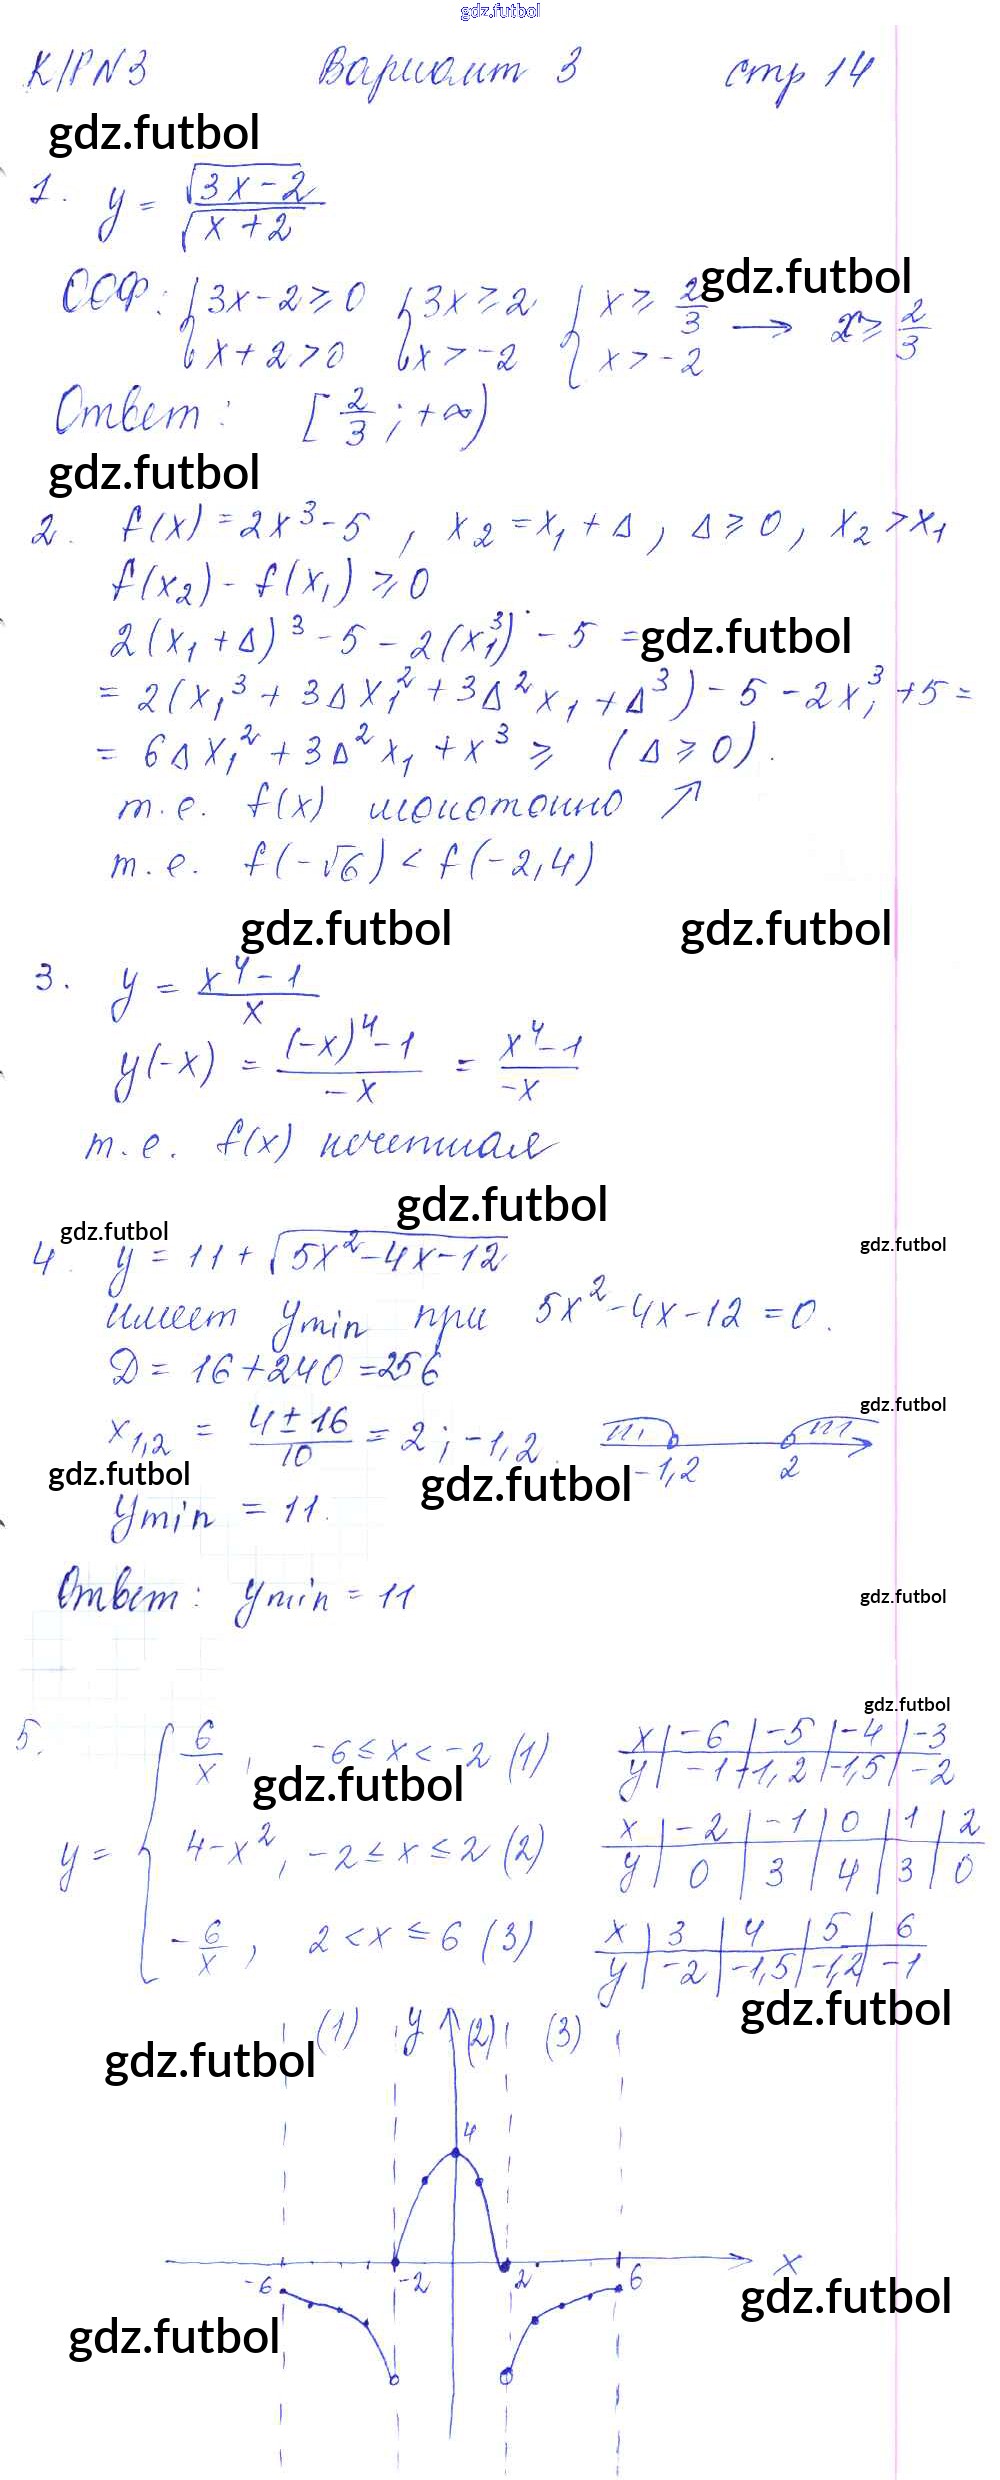 gdz.futbol
К/Р N3 Вариант 3 стр 14
gdz.futbol
1. y = √(3x-2) / √(x+2)
gdz.futbol
ООФ: { 3x-2 ≥ 0 { 3x ≥ 2 { x ≥ 2/3 → x ≥ 2/3
x+2 > 0 x > -2 x > -2
Ответ: [2/3; +∞)
gdz.futbol
2. f(x) = 2x³-5, x₂ = x₁ + Δ, Δ ≥ 0, x₂ > x₁
f(x₂) - f(x₁) ≥ 0
2(x₁ + Δ)³ - 5 - 2(x₁³) - 5 =
gdz.futbol
= 2(x₁³ + 3Δx₁² + 3Δ²x₁ + Δ³) - 5 - 2x₁³ + 5 =
= 6Δx₁² + 3Δ²x₁ + x³ ≥ (Δ ≥ 0).
т.е. f(x) монотонно ↗
т.е. f(-√6) < f(-2,4)
gdz.futbol gdz.futbol
3. y = (x⁴-1)/x
y(-x) = ((-x)⁴-1)/(-x) = (x⁴-1)/(-x)
т.е. f(x) нечетная
gdz.futbol
gdz.futbol gdz.futbol
4. y = 11 + √(5x²-4x-12)
имеет ymin при 5x²-4x-12 = 0.
Д = 16+240 = 256
gdz.futbol
x₁,₂ = (4±16)/10 = 2; -1,2. -1,2 2
gdz.futbol gdz.futbol
ymin = 11.
Ответ: ymin = 11
gdz.futbol
gdz.futbol
5. y = { 6/x, -6 ≤ x < -2 (1) x | -6 | -5 | -4 | -3
y | -1 | -1,2 | -1,5 | -2
gdz.futbol
4-x², -2 ≤ x ≤ 2 (2) x | -2 | -1 | 0 | 1 | 2
y | 0 | 3 | 4 | 3 | 0
-6/x, 2 < x ≤ 6 (3) x | 3 | 4 | 5 | 6
y | -2 | -1,5 | -1,2 | -1
gdz.futbol
(1) y (2) (3)
gdz.futbol
4
-6 -2 2 6 x
gdz.futbol
gdz.futbol